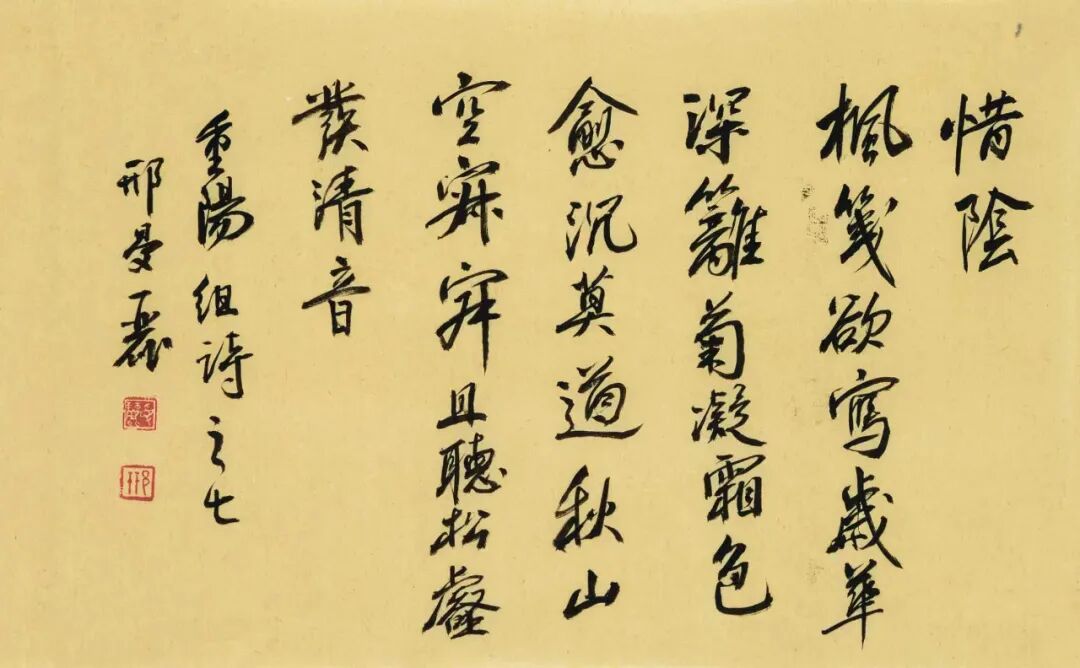 惜陰
楓箋欲寫歲華
深籬菊凝霜色
愈沉莫道秋山
空寂寂且聽松壑
發清音
重陽組詩之七
邢曼麗